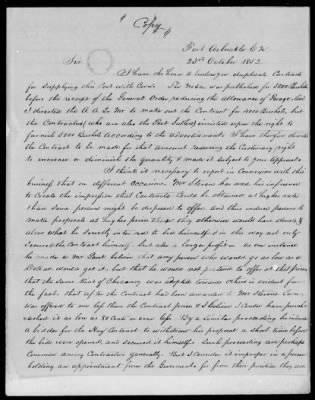 Copy
Fort Arbuckle C. N.
23rd October 1852
Sir
I have the honor to enclose you duplicate Contracts
for supplying this Post with Corn. The Notice was published for 5000 Bushels
before the receipt of the General Order reducing the allowance of forage. And
I directed the A. A. Qr Mr to make out the Contract for 4000 Bushels, but
the Contractors (who are also the Post Sutlers) insisted upon the right to
furnish 5000 Bushels according to the advertisement. I have therefore directed
the Contract to be made for that amount reserving the Customary right
to increase or diminish the quantity & made it subject to your approval.
I think it necessary to report in Connexion with this
himself that on different occasions Mr Stevens has used his influence
to create the impression that Contracts Could be obtained at higher rates
than Some persons might be disposed to offer and thus induce persons to
make proposals at higher prices than they otherwise would have done, &
when what he secretly intended to bid himself in this way not only
secured the Contract himself but also a larger profit. In one instance
he made a Mr Paul believe that any person who would go as low as a
Dollar would get it, but that he would not pretend to offer at that price,
that the same kind of Chicanery was adopted towards others is evident from
the fact, that after the Contract had been awarded to Mr Stevens Corn
was offered to me less than the Contract price & I believe I could have purchased
it as low as 80 Cents or even less. By a similar proceeding he induced
a bidder for the Hay Contract to withdraw his proposal a short time before
the bids were opened, and secured it himself. Such proceedings are perhaps
common among Contractors generally. But I consider it improper in a person
holding an appointment from the Government for from their position they are